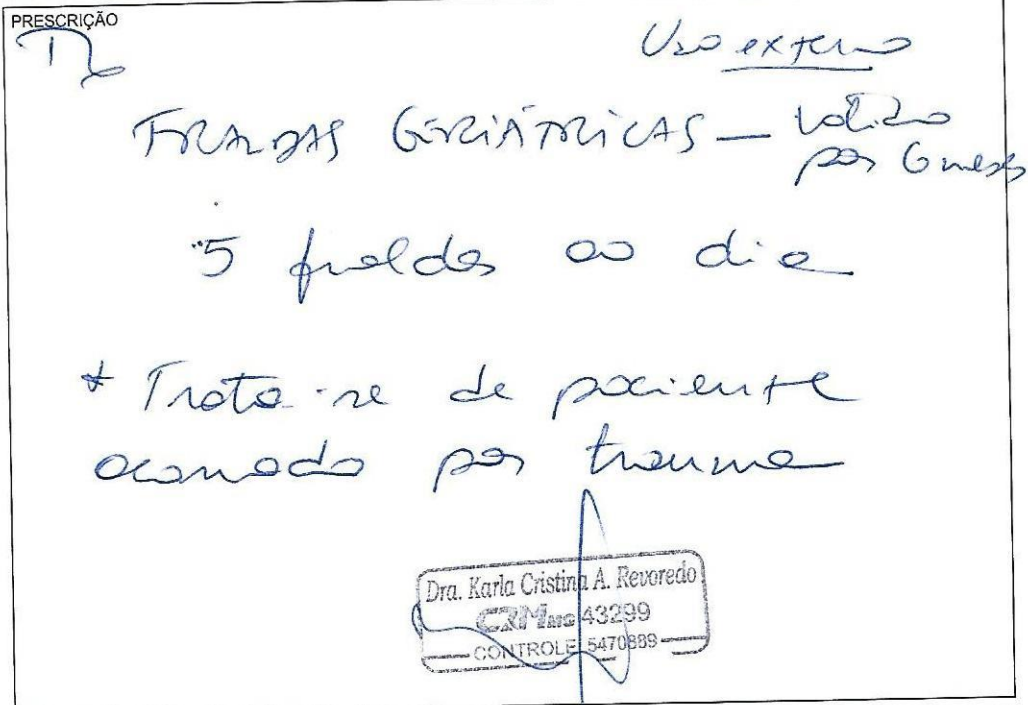 PRESCRIÇÃO
Uso externo
FRALDAS GERIÁTRICAS — válido
por 6 meses
5 fraldas ao dia
* Trata-se de paciente
acamado por trauma
Dra. Karla Cristina A. Revoredo
CRM MG 43299
CONTROLE 5470889